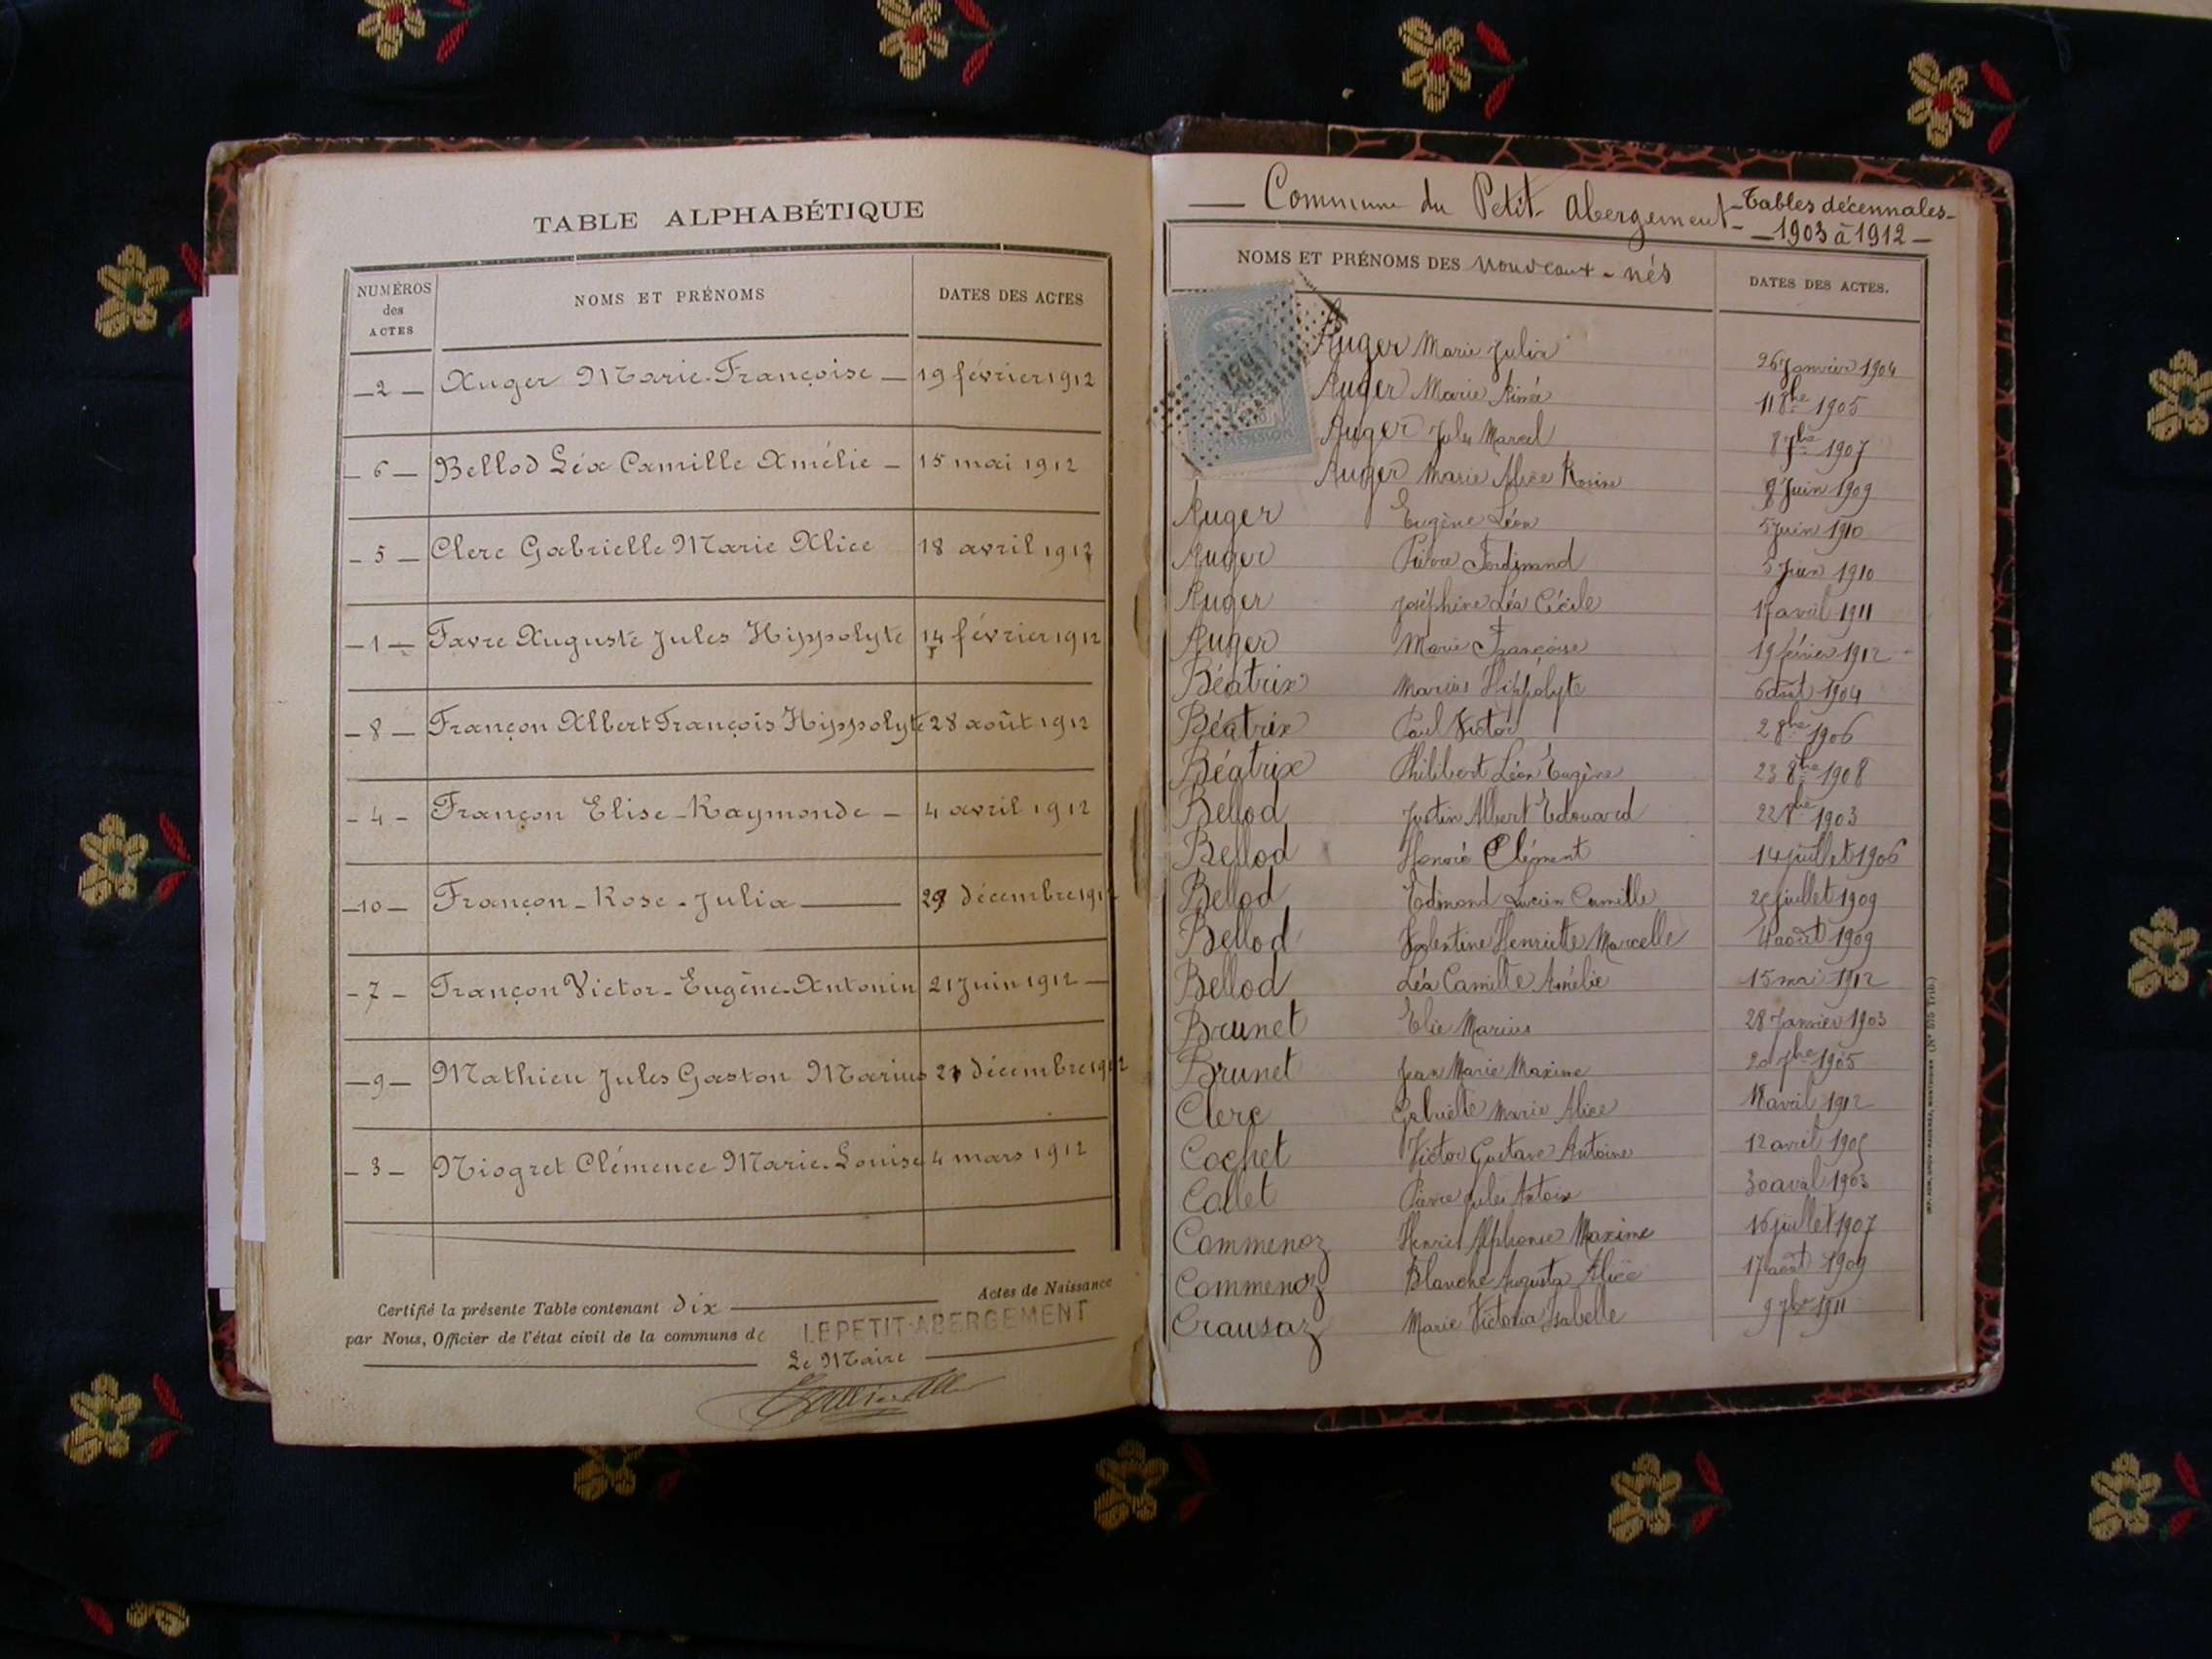 TABLE ALPHABÉTIQUE
NUMÉROS des ACTES NOMS ET PRÉNOMS DATES DES ACTES
— 2 — Auger Marie-Françoise — 19 février 1912
— 6 — Bellod Léa Camille Amélie — 15 mai 1912
— 5 — Clerc Gabrielle Marie Alice 18 avril 1912
— 1 — Favre Auguste Jules Hippolyte 14 février 1912
— 8 — Françon Albert François Hippolyte 28 août 1912
— 4 — Françon Elise-Raymonde — 4 avril 1912
— 10 — Françon-Rose-Julia — décembre 191
— 7 — Françon Victor-Eugène-Antonin 21 Juin 1912 —
— 9 — Mathieu Jules Gaston Marius décembre 1912
— 3 — Niogret Clémence Marie-Louise 4 mars 1912
Certifié la présente Table contenant dix Actes de Naissance
par Nous, Officier de l'état civil de la commune de LE PETIT-ABERGEMENT
Le Maire
— Commune du Petit-Abergement — Tables décennales —
— 1903 à 1912 —
NOMS ET PRÉNOMS DES nouveaux-nés DATES DES ACTES.
Auger Marie Julia 26 Janvier 1904
Auger Marie Aimée 11 8bre 1905
Auger Jules Marcel 8 7bre 1907
Auger Marie Alice Rosine 8 Juin 1909
Auger Eugène Léon 5 Juin 1910
Auger Pierre Ferdinand 5 Juin 1910
Auger Joséphine Léa Cécile 17 avril 1911
Auger Marie Françoise 19 février 1912
Béatrix Marius Hippolyte 6 août 1904
Béatrix Paul Victor 2 8bre 1906
Béatrix Philibert Léon Eugène 23 8bre 1908
Bellod Justin Albert Edouard 22 1903
Bellod Honoré Clément 14 juillet 1906
Bellod Edmond Lucien Camille juillet 1909
Bellod Valentine Henriette Marcelle 4 août 1909
Bellod Léa Camille Amélie 15 mai 1912
Brunet Elie Marius 28 Janvier 1903
Brunet Jean Marie Maxime 20 7bre 1905
Clerc Gabrielle Marie Alice 18 avril 1912
Cochet Victor Gustave Antoine 12 avril
Collet Pierre Jules 30 avril 1903
Commenoz Henri Alphonse Maxime 16 juillet 1907
Commenoz Blanche Augusta Alice 17 août 1909
Crausaz Marie Victoria Isabelle 9 7bre 1911